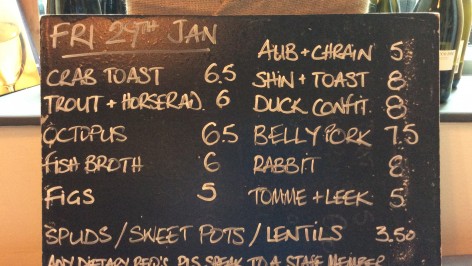 FRI 29TH JAN
CRAB TOAST 6.5
TROUT + HORSERAD. 6
OCTOPUS 6.5
FISH BROTH 6
FIGS 5
AUB + CHRAIN 5
SHIN + TOAST 8
DUCK CONFIT 8
BELLY PORK 7.5
RABBIT 8
TOMME + LEEK 5
SPUDS / SWEET POTS / LENTILS 3.50
ANY DIETARY REQ'S PLS SPEAK TO A STAFF MEMBER